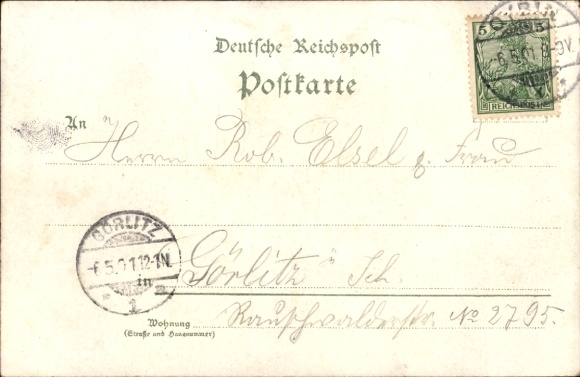 Deutsche Reichspost
Postkarte
5 5
REICHSPOST
6.5.01.8-9V.
An
Herrn Rob. Elsel u. Frau
GÖRLITZ
6.5.01.12-1N.
in
* 1 a
Görlitz i/ Sch.
Rauschwalderstr. No 2795.
Wohnung
(Straße und Hausnummer)